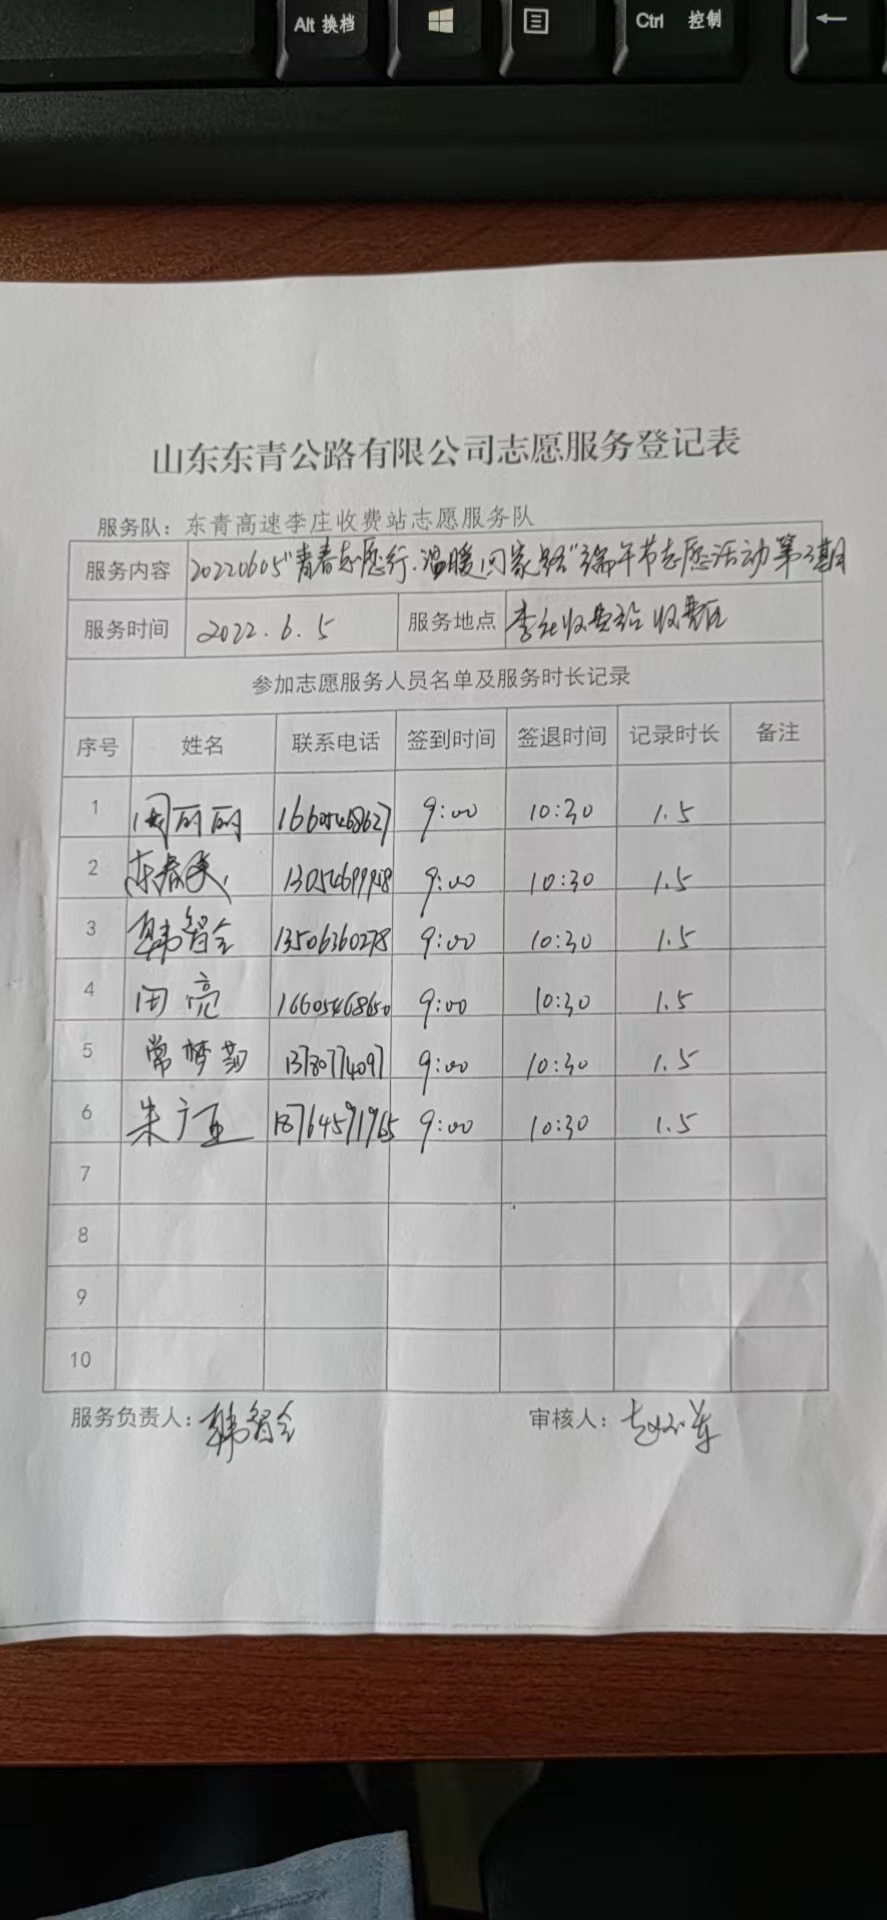 Alt 换档
Ctrl 控制
山东东青公路有限公司志愿服务登记表
服务队：东青高速李庄收费站志愿服务队
服务内容 20220605“青春志愿行.温暖回家路”端午节志愿活动第3期
服务时间 2022.6.5 服务地点 李庄收费站收费区
参加志愿服务人员名单及服务时长记录
序号 姓名 联系电话 签到时间 签退时间 记录时长 备注
1 周丽丽 16605468627 9:00 10:30 1.5
2 9:00 10:30 1.5
3 韩智全 13506360278 9:00 10:30 1.5
4 田亮 16605468650 9:00 10:30 1.5
5 常梦茹 13780774097 9:00 10:30 1.5
6 朱广亚 18764591965 9:00 10:30 1.5
7
8
9
10
服务负责人：韩智全 审核人：